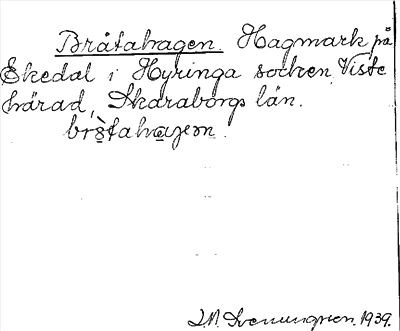 Bråtahagen. Hagmark på
Ekedal i Hyringa socken, Viste
härad, Skaraborgs län.
brɔ̀tahɑgem.
J.N. Svenungsson. 1939.